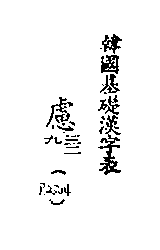 韓國基礎漢字表
慮
九三三
(P.2504)